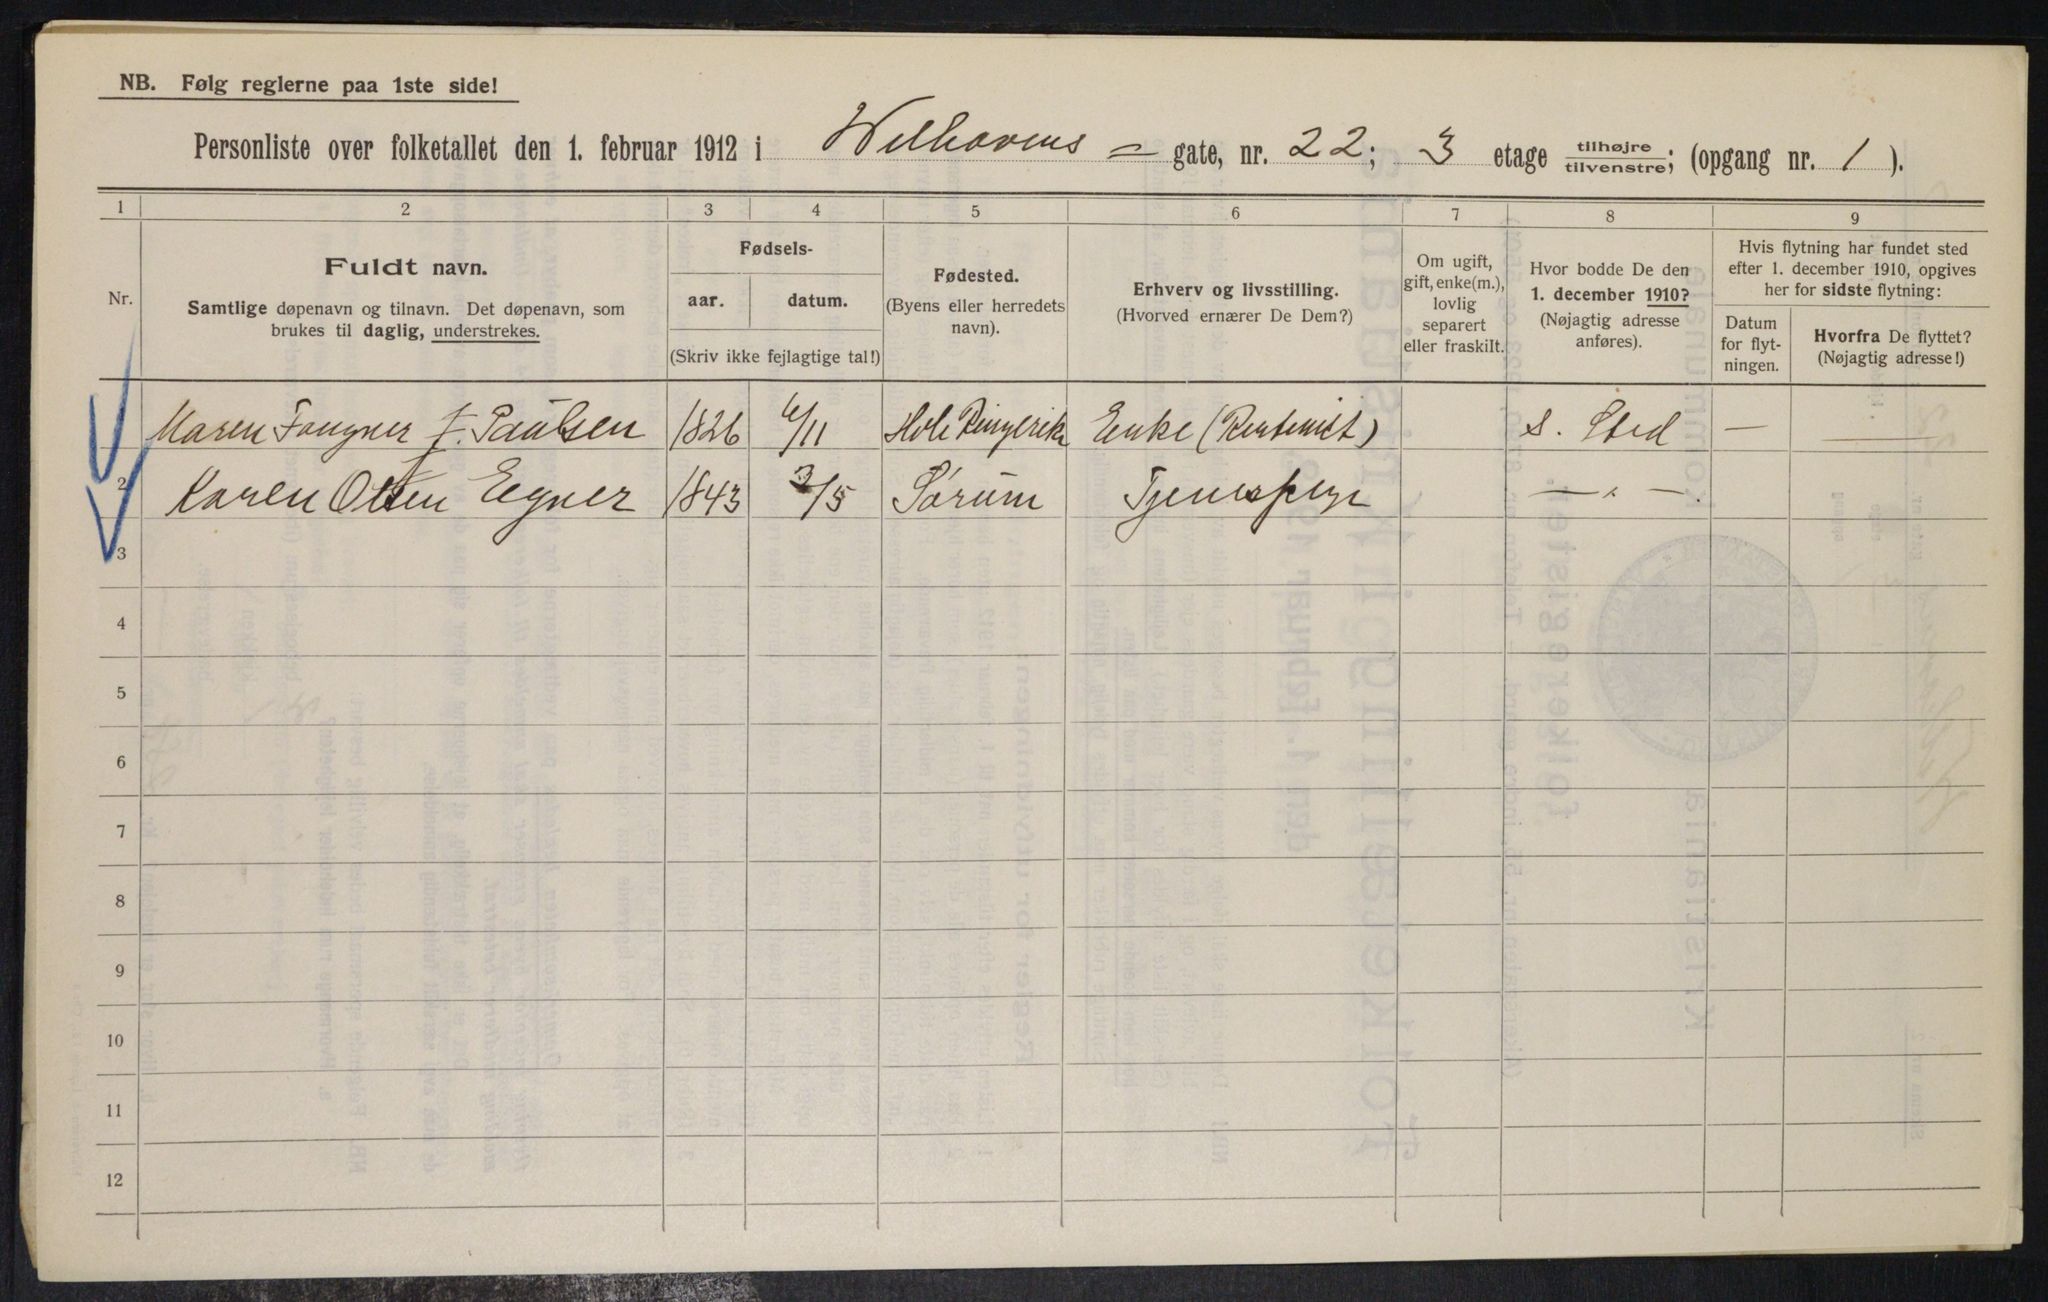 NB. Følg reglerne paa 1ste side!
Personliste over folketallet den 1. februar 1912 i Welhavens = gate, nr. 22; 3 etage tilhøjre tilvenstre; (opgang nr. 1).
1 2 3 4 5 6 7 8 9
Nr.
Fuldt navn.
Samtlige døpenavn og tilnavn. Det døpenavn, som
brukes til daglig, understrekes.
Fødsels-
aar. datum.
(Skriv ikke fejlagtige tal!)
Fødested.
(Byens eller herredets
navn).
Erhverv og livsstilling.
(Hvorved ernærer De Dem?)
Om ugift,
gift, enke(m.),
lovlig
separert
eller fraskilt.
Hvor bodde De den
1. december 1910?
(Nøjagtig adresse
anføres).
Hvis flytning har fundet sted
efter 1. december 1910, opgives
her for sidste flytning:
Datum
for flyt-
ningen.
Hvorfra De flyttet?
(Nøjagtig adresse!)
Maren Fougner f. Paulsen 1826 6/11 Hole Ringerike Enke (Rentenist) s. Sted — —
2 Karen Olsen Egner 1843 3/5 Sørum Tjenestpige — " —
3
4
5
6
7
8
9
10
11
12